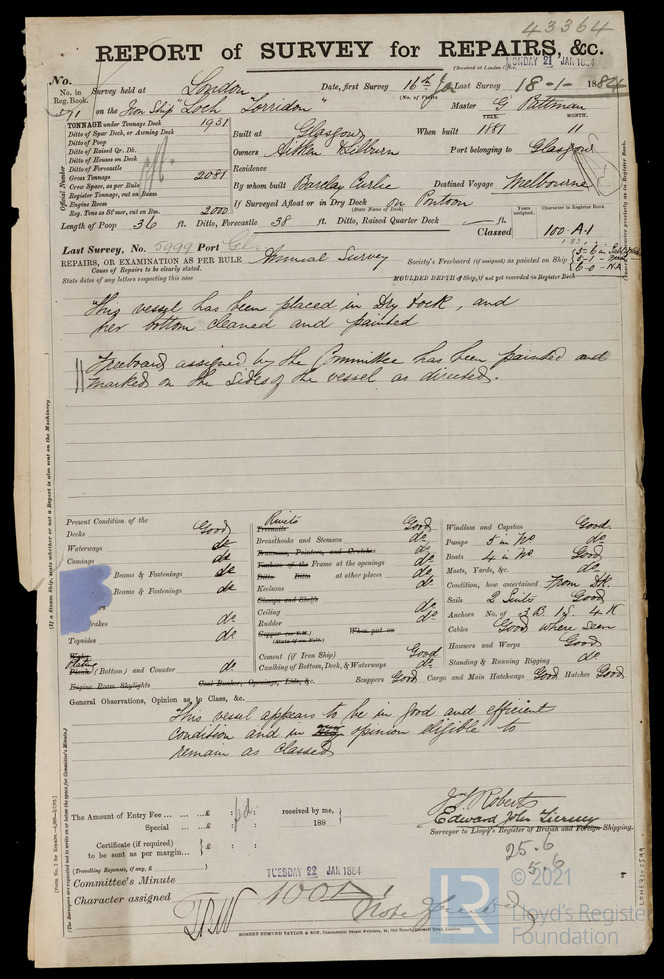 43364
REPORT of SURVEY for REPAIRS, &c.
(Received at London Office,
MONDAY 21 JAN. 1884
No.
No. in Reg. Book.
571
Survey held at London Date, first Survey 16th Last Survey 18-1-1884
(No. of Visits
on the Iron Ship "Loch Torridon" Master G Pittman
TONNAGE under Tonnage Deck 1931
Ditto of Spar Deck, or Awning Deck
Ditto of Poop
Ditto of Raised Qr. Dk.
Ditto of Houses on Deck
Ditto of Forecastle
Gross Tonnage 2081
Crew Space, as per Rule
Register Tonnage, cut on Beam
Engine Room
Reg. Tons as St'mer, cut on Bm. 2000
Official Number
YEAR. MONTH.
Built at Glasgow When built 1881 11
Owners Aitken Lilburn Port belonging to Glasgow
Residence
By whom built Barclay Curlie Destined Voyage Melbourne
If Surveyed Afloat or in Dry Dock on Pontoon
(State Name of Dock)
Years assigned. Character in Register Book.
Length of Poop 36 ft. Ditto, Forecastle 38 ft. Ditto, Raised Quarter Deck — ft.
Classed 100 A.1
Last Survey, No. 5999 Port
REPAIRS, OR EXAMINATION AS PER RULE Annual Survey
Cause of Repairs to be clearly stated.
State dates of any letters respecting this case
Society's Freeboard (if assigned) as painted on Ship
MOULDED DEPTH of Ship, if not yet recorded in Register Book
This vessel has been placed in Dry Dock, and
her bottom cleaned and painted
Freeboard assigned by the Committee has been painted and
marked on the sides of the vessel as directed.
(If a Steam Ship, state whether or not a Report is also sent on the Machinery
Present Condition of the
Decks Good
Waterways do
Comings do
Beams & Fastenings do
Beams & Fastenings do
do
Topsides do
Plating
Plank (Bottom) and Counter do
Engine Room Skylights Coal Bunker, Openings, Lids, &c.
Rivets
Treenails Good
Breasthooks and Stemson do
Transoms, Pointers, and Crutches do
Timbers of the Frame at the openings do
Ditto Ditto at other places do
Keelsons do
Stamps and Shelfs
Ceiling do
Rudder do
Copper (or Y.M.) When put on
(State if on Felt)
Cement (if Iron Ship) Good
Caulking of Bottom, Deck, & Waterways do
Windlass and Capstan Good
Pumps 5 in No do
Boats 4 in No Good
Masts, Yards, &c. do
Condition, how ascertained From Dk.
Sails 2 Suits Good
Anchors No. of 3 B 1 S 4 K
Cables Good where seen
Hawsers and Warps Good
Standing & Running Rigging do
Scuppers Good Cargo and Main Hatchways Good Hatches Good
General Observations, Opinion as to Class, &c.
This vessel appears to be in good and efficient
condition and in our opinion eligible to
remain as classed
The Amount of Entry Fee ... ... ...£ : : received by me,
Special ... ...£ : : 188
Certificate (if required)
to be sent as per margin...
(Travelling Expenses, if any, £ )
Jn. Roberts
Edward John Tierney
Surveyor to Lloyd's Register of British and Foreign Shipping.
25.6
5.6
Committee's Minute
TUESDAY 22 JAN 1884
Character assigned 100A1
ROBERT EDMUND TAYLOR & SON, Commercial Steam Printers, 19, Old Street, Goswell Road, London.
© 2021
Lloyd's Register
Foundation
LR